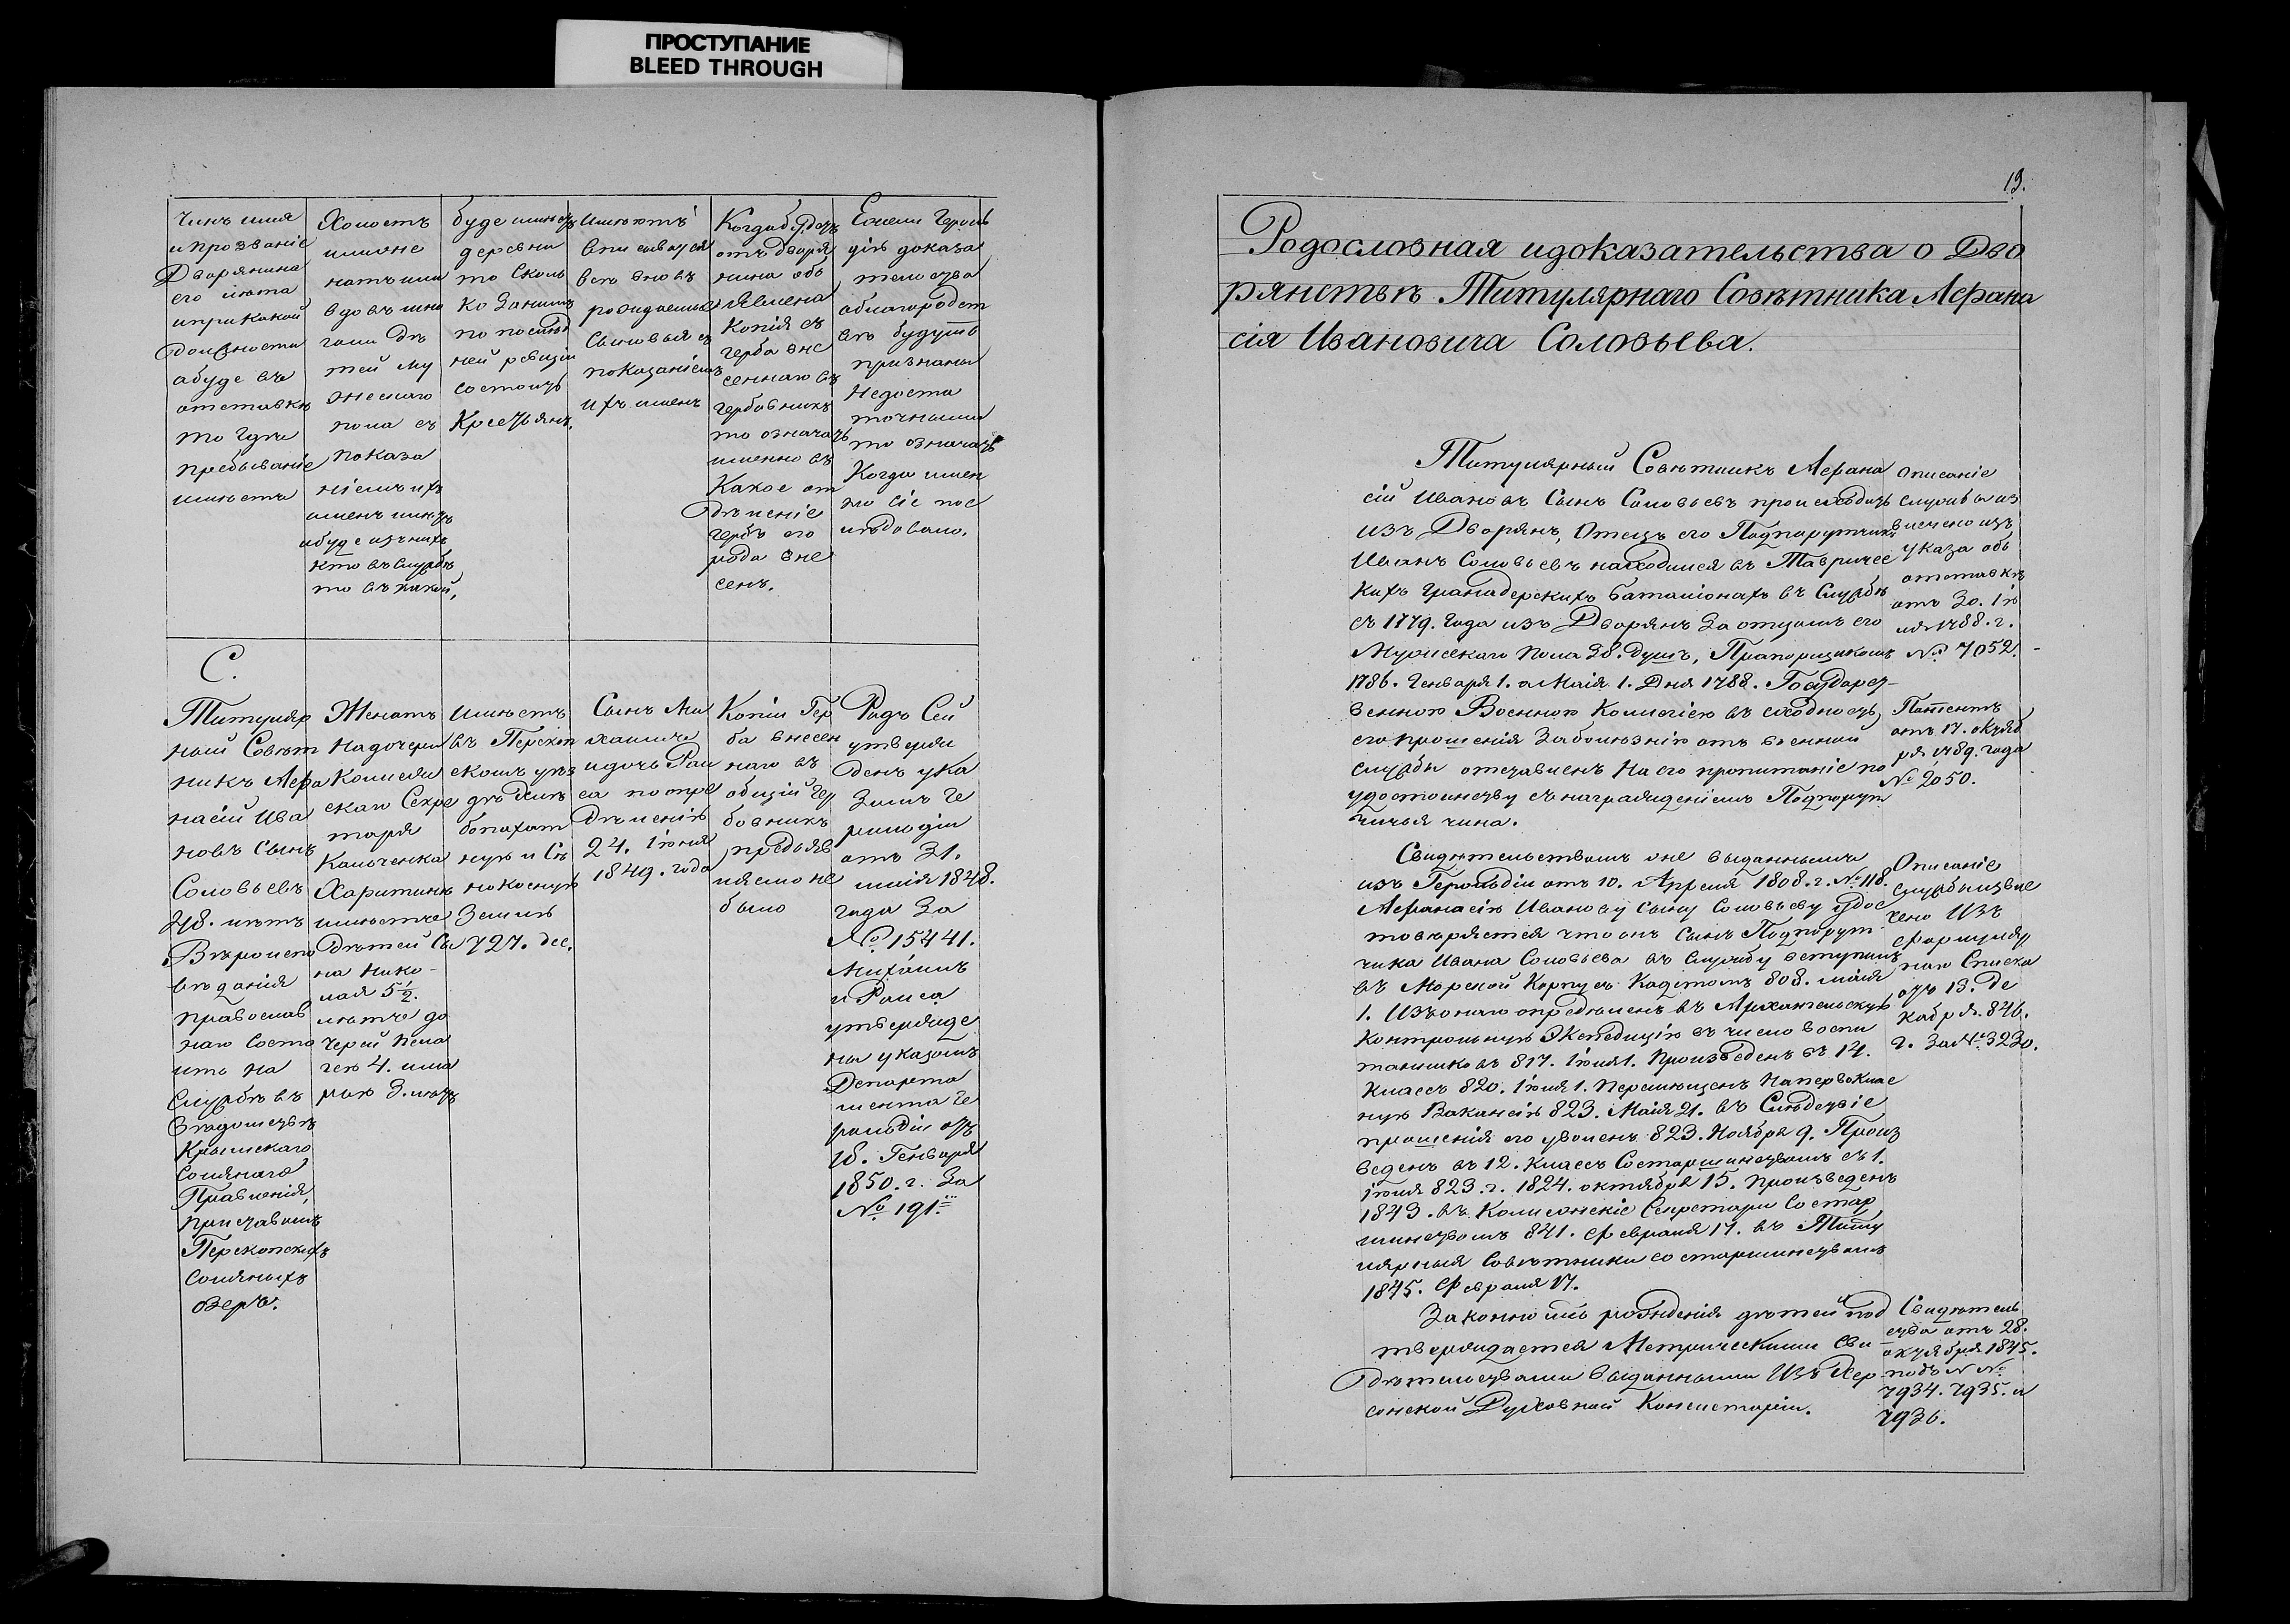 ПРОСТУПАНИЕ
BLEED THROUGH
Чинъ имя
и прозваніе
Дворянина
его лѣта
и при какой
должности
а буде въ
отставкѣ
то гдѣ
пребываніе
имѣетъ
Холостъ
или же
натъ или
вдовъ мно
гоими дѣ
тей му
жескаго
пола съ
показа
ніемъ ихъ
именъ и лѣтъ
а буде изъ нихъ
кто въ службѣ
то въ какой,
буде имѣетъ
деревни
то сколь
ко за нимъ
по послѣд
ней ревизіи
состоитъ
Крестьянъ.
Имѣютъ
вписываться
всѣ вновь
рождаемые
сыновья съ
показаніемъ
ихъ именъ
Когда будетъ
отъ дворя
нина объ
явлена
Копія съ
герба вне
сеннаго въ
гербовникъ
то означать
именно въ
Какое от
дѣленіе
гербъ его
рода вне
сенъ.
Ежели Героль
діи доказа
тельства
облагородст
вѣ будутъ
признаны
Недоста
точными
то означать
Когда имен
но сіе пос
лѣдовало.
С.
Титуляр
ный Совѣт
никъ Афа
насій Ива
новъ Сынъ
Соловьевъ
48. лѣтъ
Вѣроиспо
вѣданія
православ
наго Состо
итъ на
службѣ въ
вѣдомствѣ
Крымскаго
Солянаго
Правленія,
приставомъ
Перекопскихъ
соляныхъ
озеръ.
Женатъ
на дочери
Коллеж
скаго Секре
таря
Кольченка
Харитинѣ
имѣетъ
дѣтей Сы
на Нико-
лая 5½.
лѣтъ до
черей Пела
гею 4. и Ма
рью 3. лѣтъ
Имѣетъ
въ Перекоп
скомъ уѣз
дѣ Хлѣ
бопахат
ную и Сѣ
нокосную
Землю
727. дес.
Сынъ Ми
хаилъ
и дочь Раи
са по опре
дѣленію
24. Іюня
1849. года
Копіи Гер
ба внесен
наго въ
общій Гер
бовникъ
предъяв
ляемо не
было
Родъ Сей
утверж
денъ ука
зомъ Ге
рольдіи
отъ 31.
маія 1848.
года За
№ 15441.
Михаилъ
и Раиса
утвержде
ны указомъ
Департа
мента Ге
рольдіи отъ
18. Генваря
1850. г. За
№ 191.
19.
Родословная и доказательства о Дво
рянствѣ Титулярнаго Совѣтника Афана
сія Ивановича Соловьева.
Титулярный Совѣтникъ Афана
сій Ивановъ Сынъ Соловьевъ происходитъ
изъ Дворянъ, Отецъ его Подпорутчикъ
Иванъ Соловьевъ находился въ Тавричес
кихъ Гранадерскихъ баталіонахъ въ Службѣ
съ 1779. года изъ Дворянъ За отцомъ его
Мужескаго пола 38. душъ, Прапорщикомъ
1786. Генваря 1. а Маія 1. Дня 1788. Государст-
венною Военною Коллегіею въ сходность
его прошенія За болѣзнію отъ военной
службы отставленъ На его пропитаніе по
удостоинству съ награжденіемъ Подпорут
чичья чина.
Описаніе
службы из
влечено изъ
указа объ
отставкѣ
отъ 30. Ію
ля 1788. г.
№ 7052.
Патентъ
отъ 17. октяб
ря 1789. года
№ 2050.
Свидѣтельствомъ оне выданнымъ
изъ Герольдіи отъ 10. Апреля 1808. г. № 118.
Афанасію Иванову Сыну Соловьеву удос
товѣряется что онъ Сынъ Подпорут
чика Ивана Соловьева въ Службу вступилъ
въ Морской Корпусъ Кадетомъ 808. маія
1. Изъ онаго опредѣленъ въ Архангельскую
Контрольную Экспедицію въ число воспи
танниковъ 817. Іюня 1. Произведенъ въ 14.
Классъ 820. Іюня 1. Перемѣщенъ На первоклас
ную Ваканcію 823. Маія 21. въ Слѣдствіе
прошенія его уволенъ 823. Ноября 9. Произ
веденъ въ 12. классъ Состаршинствомъ съ 1.
іюня 823. г. 1824. октября 15. произведенъ
1843. въ Коллежскіе Секретари Состар
шинствомъ 841. Февраля 17. въ Титу
лярныя Совѣтники со старшинствомъ
1845. Февраля 17.
Описаніе
службы извле
чено Изъ
формуляр
наго Списка
отъ 13. Де
кабря. 846.
г. За № 3230.
Законность рожденія дѣтей под
тверждается Метрическими сви
дѣтельствами выданными Изъ Хер
сонской Духовной Консисторіи.
Свидѣтель
ства отъ 28.
октября 1845.
подъ N №
7934. 7935. и
7936.